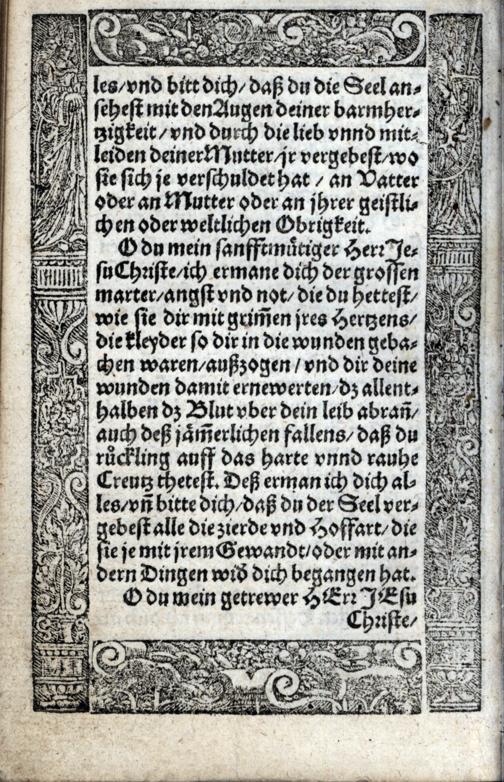 les/vnd bitt dich/ daß du die Seel an⸗
sehest mit den Augen deiner barmher⸗
tzigkeit/vnd durch die lieb vnnd mit⸗
leiden deiner Mutter/jr vergebest/wo
sie sich je verschuldet hat / an Vatter
oder an Mutter oder an jhrer geistli⸗
chen oder weltlichen Obrigkeit.
O du mein sanfftmuͤtiger Herr Je⸗
su Christe/ich ermane dich der grossen
marter/angst vnd not/ die du hettest/
wie sie dir mit grim̃en jres Hertzens/
die kleyder so dir in die wunden geba⸗
chen waren/außzogen/ vnd dir deine
wunden damit ernewerten/dz allent⸗
halben dz Blut vber dein leib abran̄/
auch deß jaͤm̃erlichen fallens/ daß du
ruͤckling auff das harte vnnd rauhe
Creutz thetest. Deß erman ich dich al⸗
les/vn̄ bitte dich/daß du der Seel ver⸗
gebest alle die zierde vnd Hoffart/die
sie je mit jrem Gewandt/oder mit an⸗
dern Dingen wid̾ dich begangen hat.
O du mein getrewer HErr JEsu
Christe/